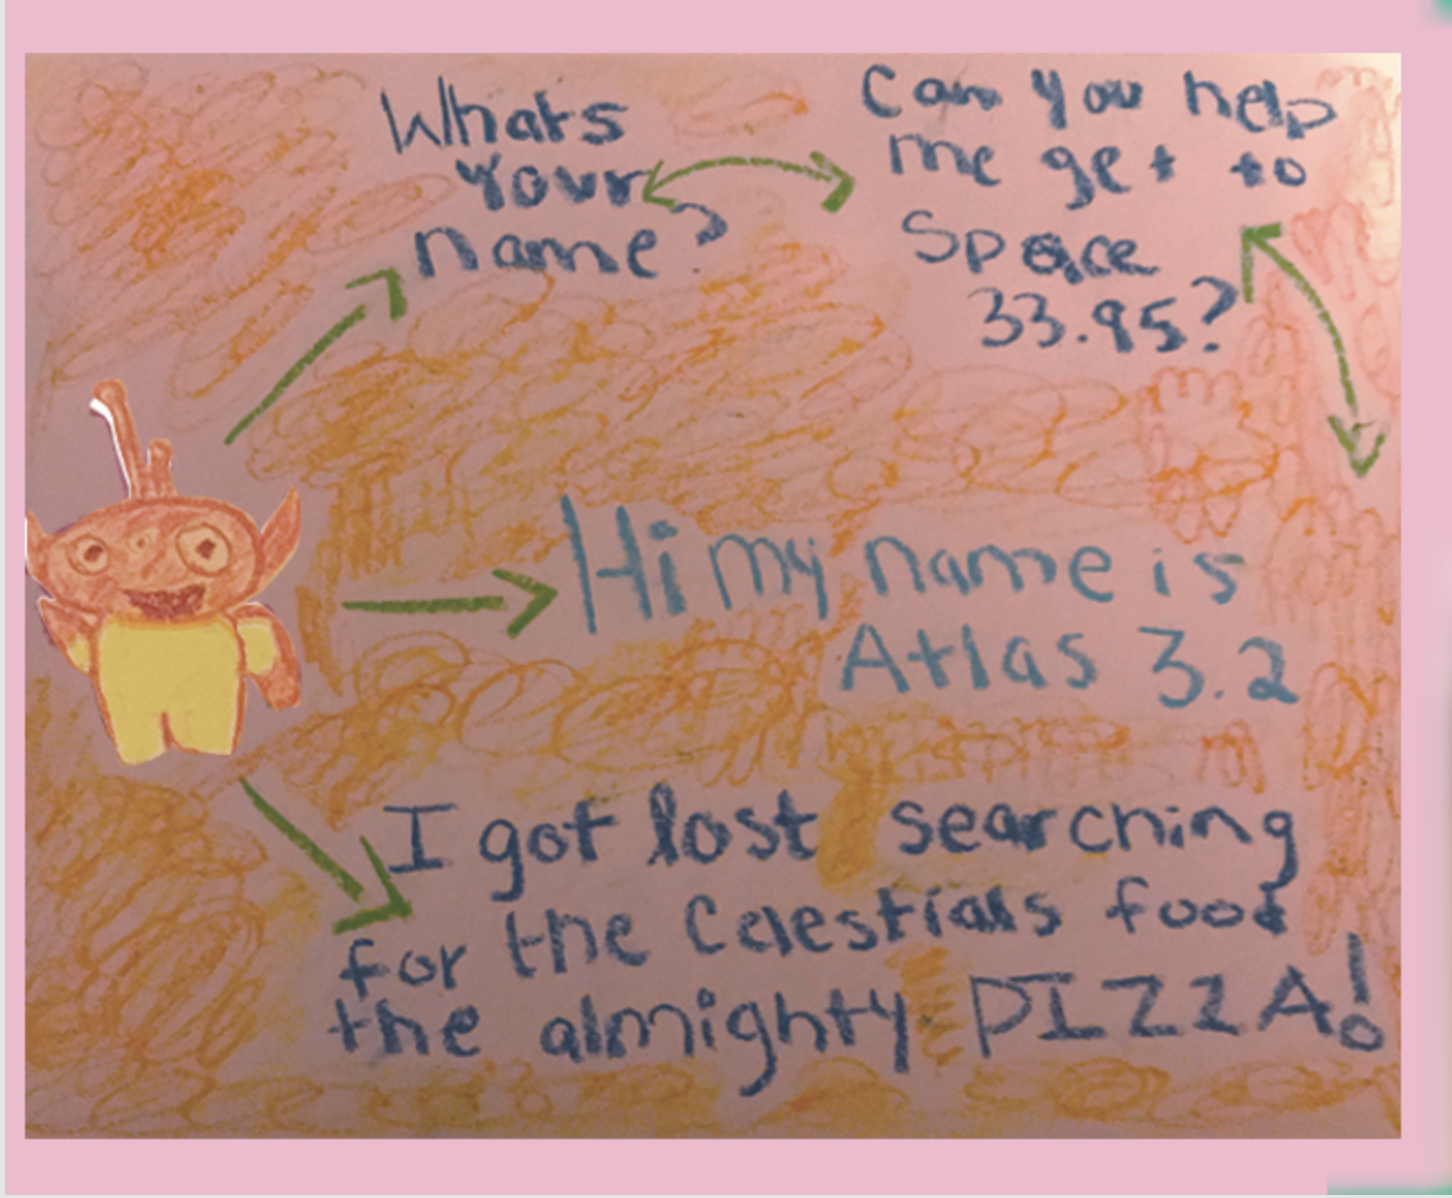 Whats
Your
name?
Can you help
me get to
Space
33.95?
Hi my name is
Atlas 3.2
I got lost searching
for the Celestials food
the almighty PIZZA!